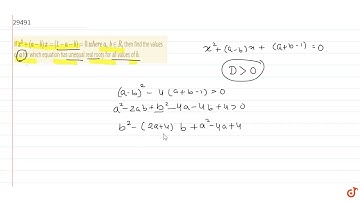 29491
If x² + (a − b)x = (1 − a − b) = 0 where a, b ∈ R, then find the values
of a for which equation has unequal real roots for all values of b.
x² + (a-b)x + (a+b-1) = 0
D > 0
(a-b)² - 4(a+b-1) > 0
a² - 2ab + b² - 4a - 4b + 4 > 0
b² - (2a+4) b + a² - 4a + 4